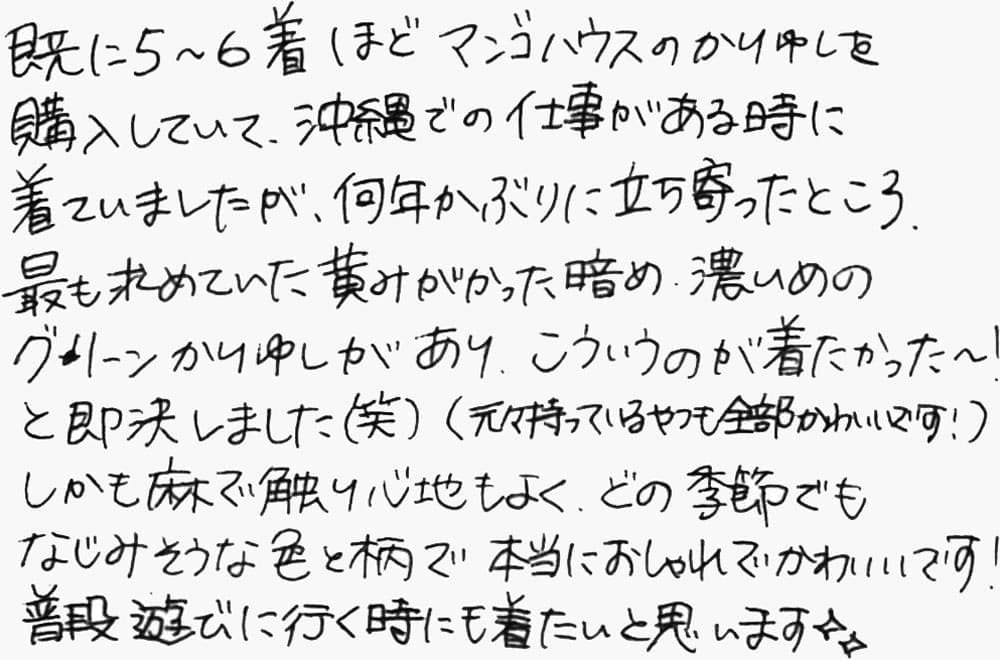 既に5~6着ほどマンゴハウスのかりゆしを
購入していて、沖縄での仕事がある時に
着ていましたが、何年かぶりに立ち寄ったところ、
最も求めていた黄みがかった暗め、濃いめの
グリーンかりゆしがあり、こういうのが着たかった~!
と即決しました(笑)(元々持っているやつも全部かわいいです!)
しかも麻で触り心地もよく、どの季節でも
なじみそうな色と柄で本当におしゃれでかわいいです!
普段遊びに行く時にも着たいと思います✧✧